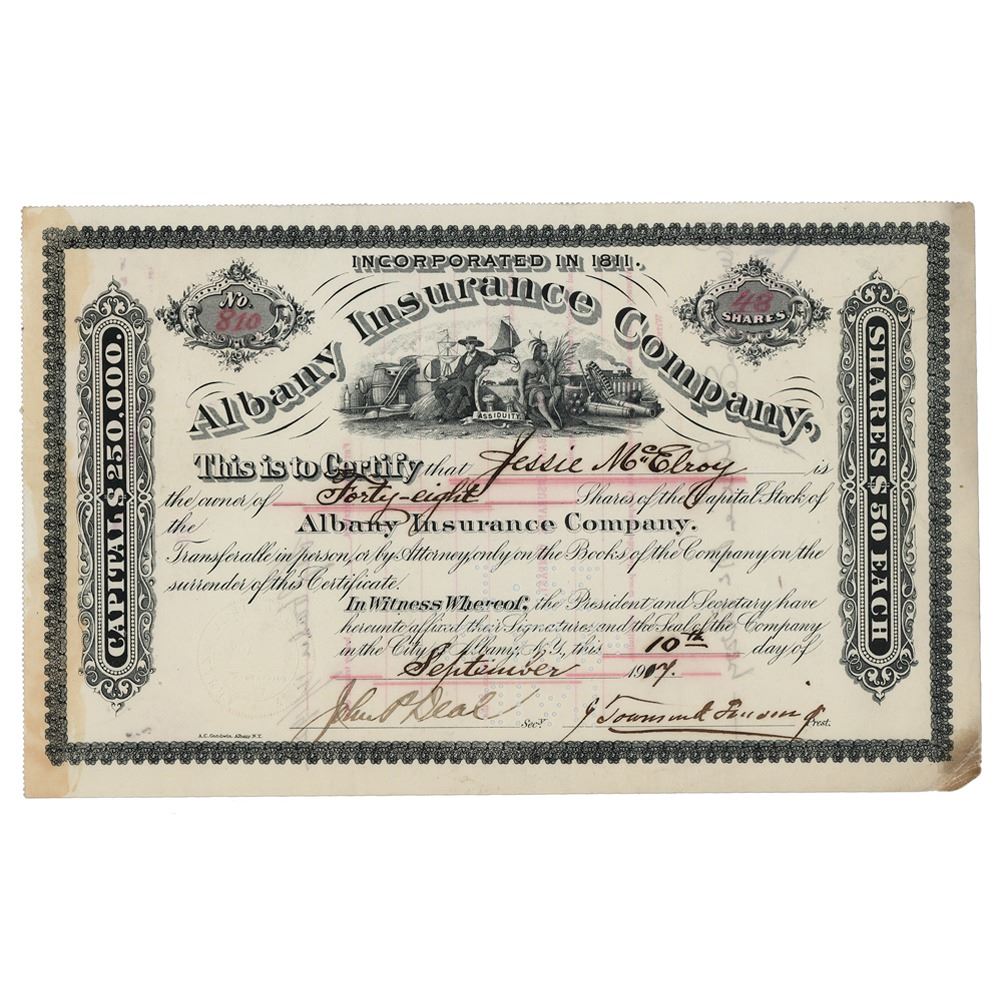 INCORPORATED IN 1811.
No. 810
48 SHARES
Albany Insurance Company,
ASSIDUITY
CAPITAL $ 250.000.
SHARES $ 50 EACH
This is to Certify that Jessie McElroy is
the owner of Forty-eight Shares of the Capital Stock of
the Albany Insurance Company.
Transferable in person, or by Attorney, only on the Books of the Company on the
surrender of this Certificate.
In Witness Whereof, the President and Secretary have
hereunto affixed their Signatures and the Seal of the Company
in the City of Albany, N.Y., this 10th day of
September 1907.
John P Deal Secy. J Townsend Lansing Prest.
A.C. Goodwin, Albany N.Y.